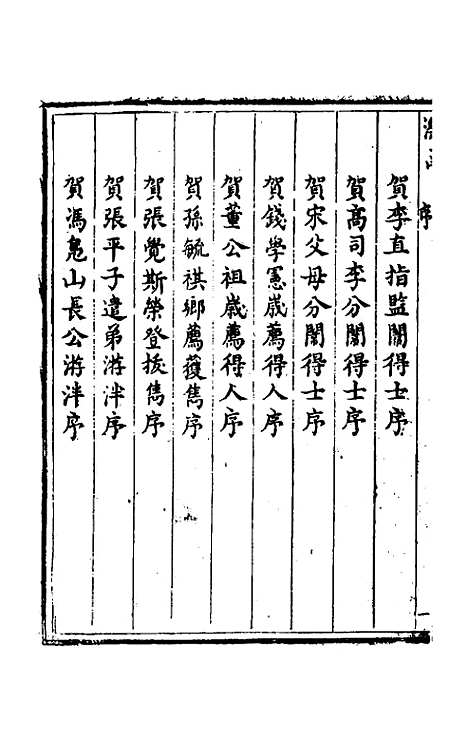 序
賀李直指監闈得士序
賀高司李分闈得士序
賀宋父母分闈得士序
賀錢學憲歲薦得人序
賀董公祖歲薦得人序
賀孫毓祺鄉薦獲雋序
賀張覺斯榮登拔雋序
賀張平子遣弟游泮序
賀馮嵬山長公游泮序
一